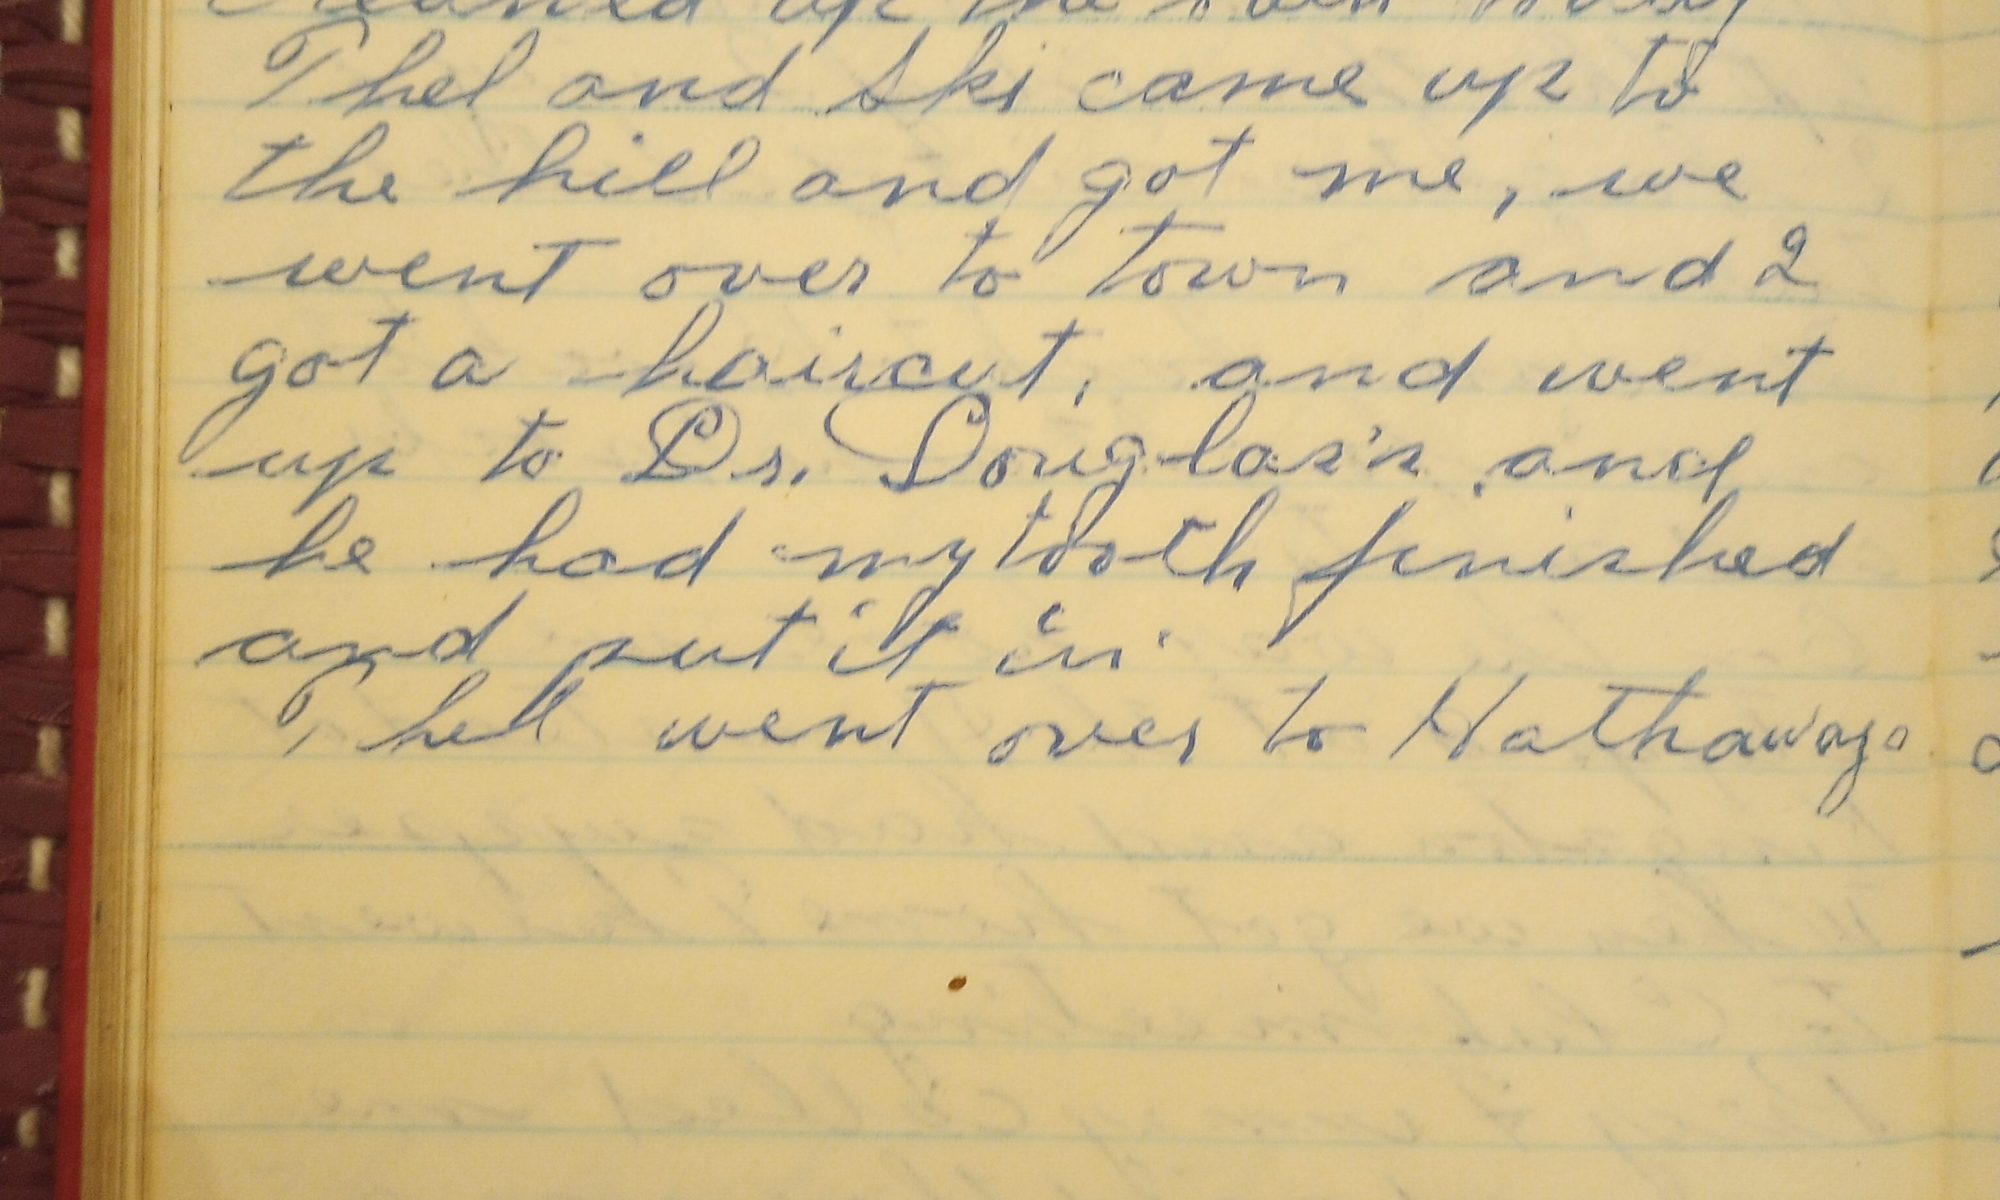 cleaned up the
Thel and Ski came up to
the hill and got me, we
went over to town and I
got a haircut, and went
up to Dr. Douglas's and
he had my tooth finished
and put it in.
Thell went over to Hathaways